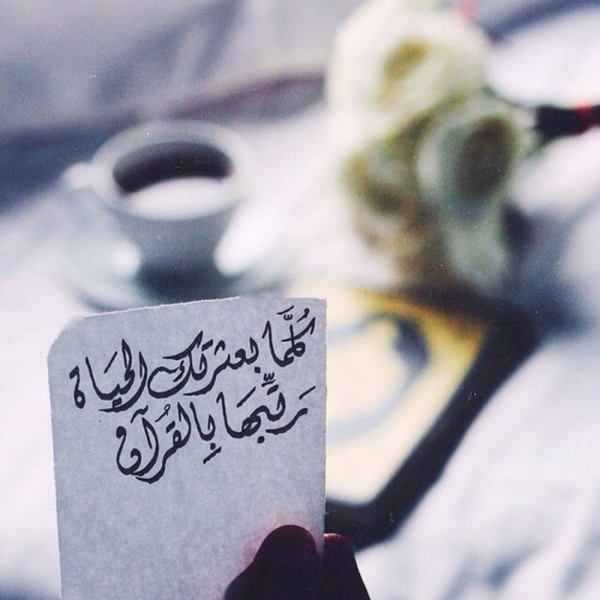 كُلَّما بعثرتك الحيَاة
رَتِّبهَا بِالقُرآن